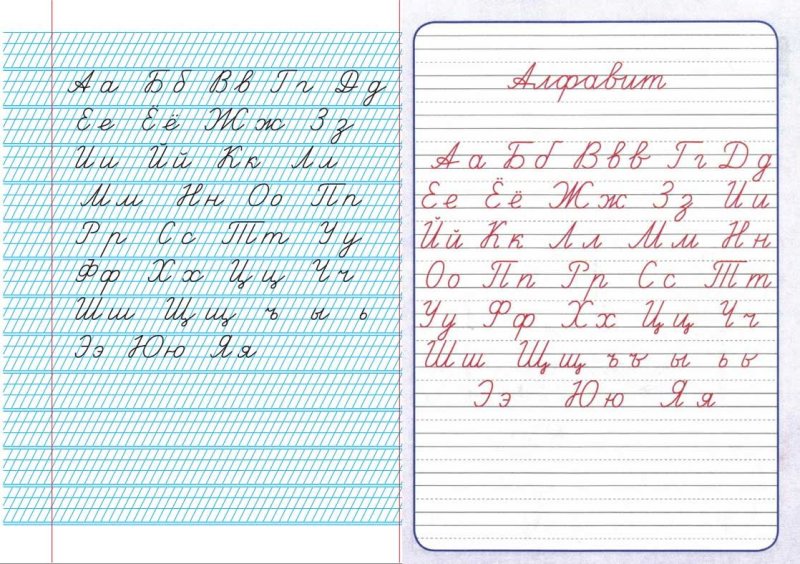 Аа Бб Вв Гг Дд
Ее Ёё Жж Зз
Ии Йй Кк Лл
Мм Нн Оо Пп
Рр Сс Тт Уу
Фф Хх Цц Чч
Шш Щщ ъ ы ь
Ээ Юю Яя
Алфавит
Аа Бб Ввв Гг Дд
Ее Ёё Жж Зз Ии
Йй Кк Лл Мм Нн
Оо Пп Рр Сс Тт
Уу Фф Хх Цц Чч
Шш Щщ ъъ ы ьь
Ээ Юю Яя